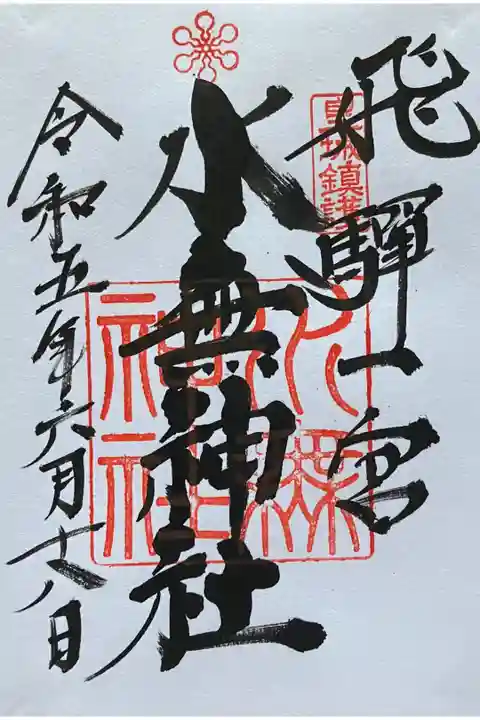 飛騨一宮
皇城鎮護
水無神社
水無神社
令和五年六月十八日